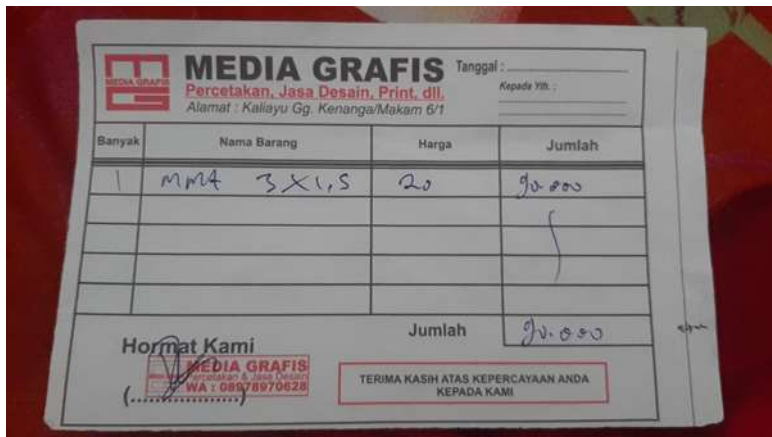 MEDIA GRAFIS
MEDIA GRAFIS
Percetakan, Jasa Desain, Print, dll.
Alamat : Kaliayu Gg. Kenanga/Makam 6/1
Tanggal :
Kepada Yth. :
Banyak Nama Barang Harga Jumlah
1 MMT 3X1,5 20 90.000
Jumlah 90.000
Hormat Kami
MEDIA GRAFIS
Percetakan & Jasa Desain
WA : 08978970628
(..................)
TERIMA KASIH ATAS KEPERCAYAAN ANDA
KEPADA KAMI